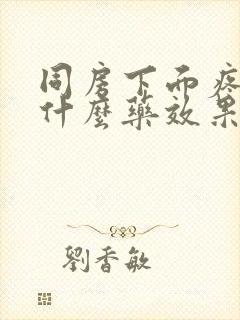 同房下面疼
什麼藥效果
劉香敏